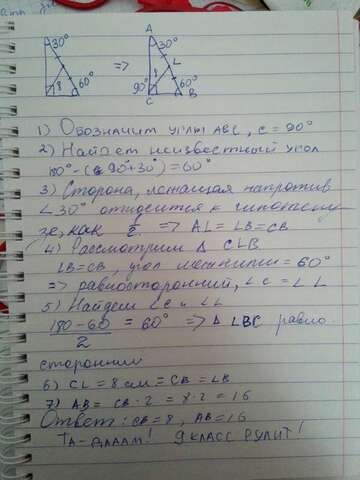 30°
8
60°
=>
A
30°
L
8
90°
60°
C
B
1) Обозначим углы ABC, C = 90°
2) Найдем неизвестный угол
180°-(90°+30°)=60°
3) Сторона, лежащая напротив
∠30° относится к гипотенузе
как 1/2 => AL=LB=CB
4) Рассмотрим Δ CLB
LB=CB, угол между ними = 60°
=> равносторонний, ∠C = ∠L
5) Найдем ∠C и ∠L
180-60
2
= 60° => Δ LBC равно-
сторонний
6) CL = 8 см = CB = LB
7) AB = CB·2 = 8·2 = 16
Ответ: CB=8, AB=16
ТА-ДАААМ! 9 КЛАСС РУЛИТ!